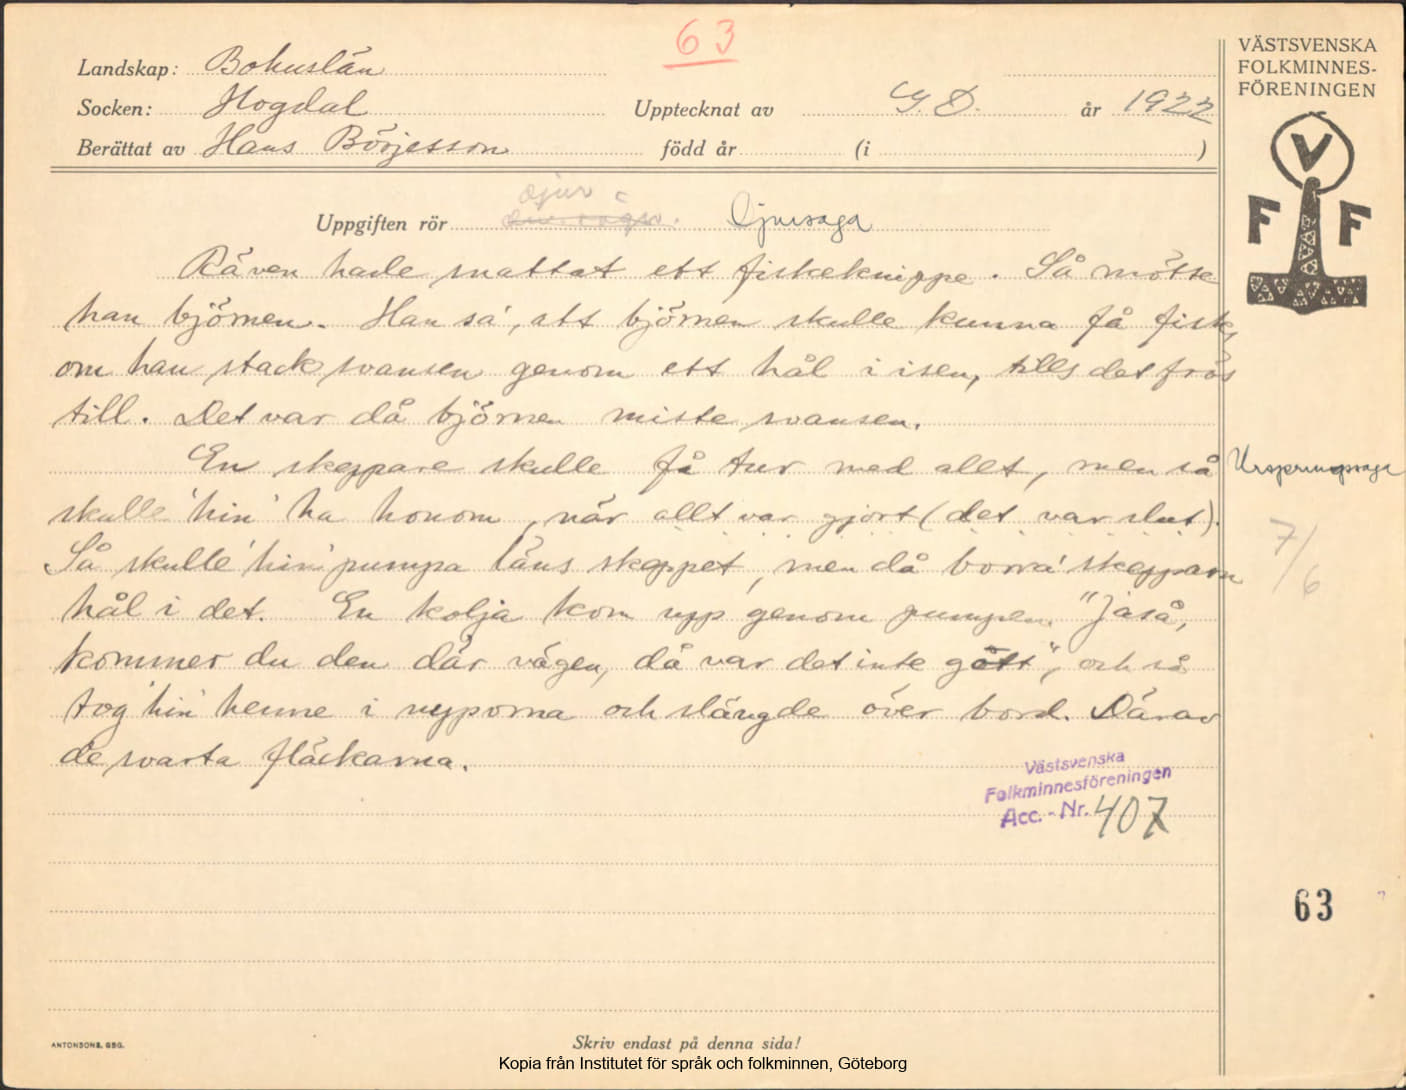 63
Landskap: Bohuslän
Socken: Hogdal
Upptecknat av G. D. år 1922
Berättat av Hans Börjesson född år (i )
Uppgiften rör djur Djursaga
Räven hade snattat ett fiskeknippe. Så mötte
han björnen. Han sa', att björnen skulle kunna få fisk,
om han stack svansen genom ett hål i isen, tills det frös
till. Det var då björnen miste svansen.
En skeppare skulle få tur med allt, men så
skulle 'hin' ha honom, när allt var gjort (det var slut).
Så skulle 'hin' pumpa läns skeppet, men då borra' skepparn
hål i det. En kolja kom upp genom pumpen. "Jaså,
kommer du den där vägen, då var det inte gott", och så
tog 'hin' henne i nyporna och slängde över bord. Därav
de svarta fläckarna.
Västsvenska
Folkminnesföreningen
Acc. - Nr. 407
ANTONSONS, GBG.
Skriv endast på denna sida!
Kopia från Institutet för språk och folkminnen, Göteborg
VÄSTSVENSKA
FOLKMINNES-
FÖRENINGEN
V
F F
Ursprungssaga
7/6
63